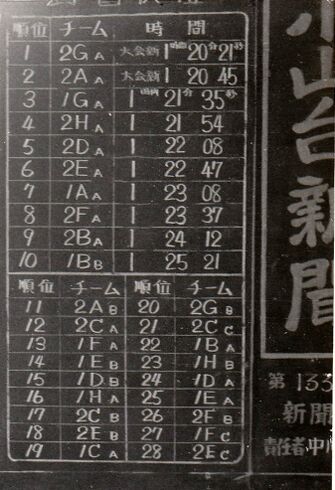 順位 チーム 時間
1 2GA 大会新 1時間20分21秒
2 2AA 大会新 1 20 45
3 1GA 1時間21分35秒
4 2HA 1 21 54
5 2DA 1 22 08
6 2EA 1 22 47
7 1AA 1 23 08
8 2FA 1 23 37
9 2BA 1 24 12
10 1BB 1 25 21
順位 チーム 順位 チーム
11 2AB 20 2GB
12 2CA 21 2CC
13 1FA 22 1BA
14 1EB 23 1HB
15 1DB 24 1DA
16 1HA 25 1EA
17 2CB 26 2FB
18 2EB 27 1FC
19 1CA 28 2EC
小山台新聞
第133
新聞
責任者中